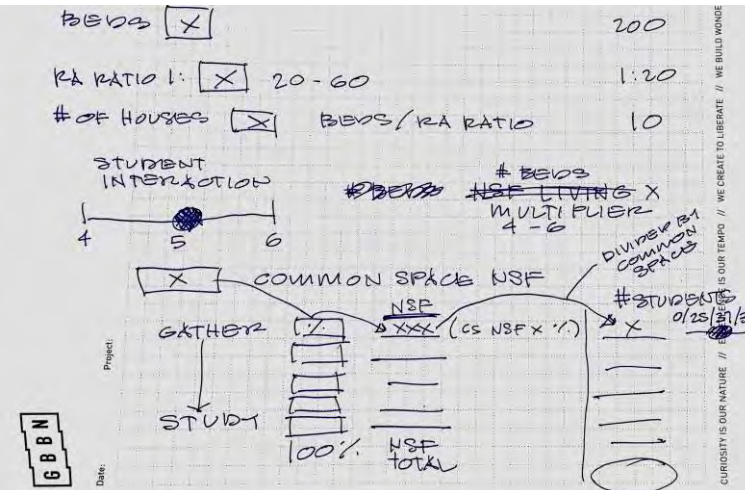 BEDS X 200
RA RATIO 1: X 20-60 1:20
# OF HOUSES X BEDS/RA RATIO 10
STUDENT
INTERACTION
# BEDS
NSF LIVING X
MULTIPLIER
4-6
4 5 6
DIVIDED BY
COMMON
SPACE
X COMMON SPACE NSF
NSF
# STUDENTS
GATHER % XXX (CS NSF X %) X
STUDY
100% NSF
TOTAL
Project:
Date:
GBBN
CURIOSITY IS OUR NATURE //
IS OUR TEMPO // WE CREATE TO LIBERATE // WE BUILD WONDE